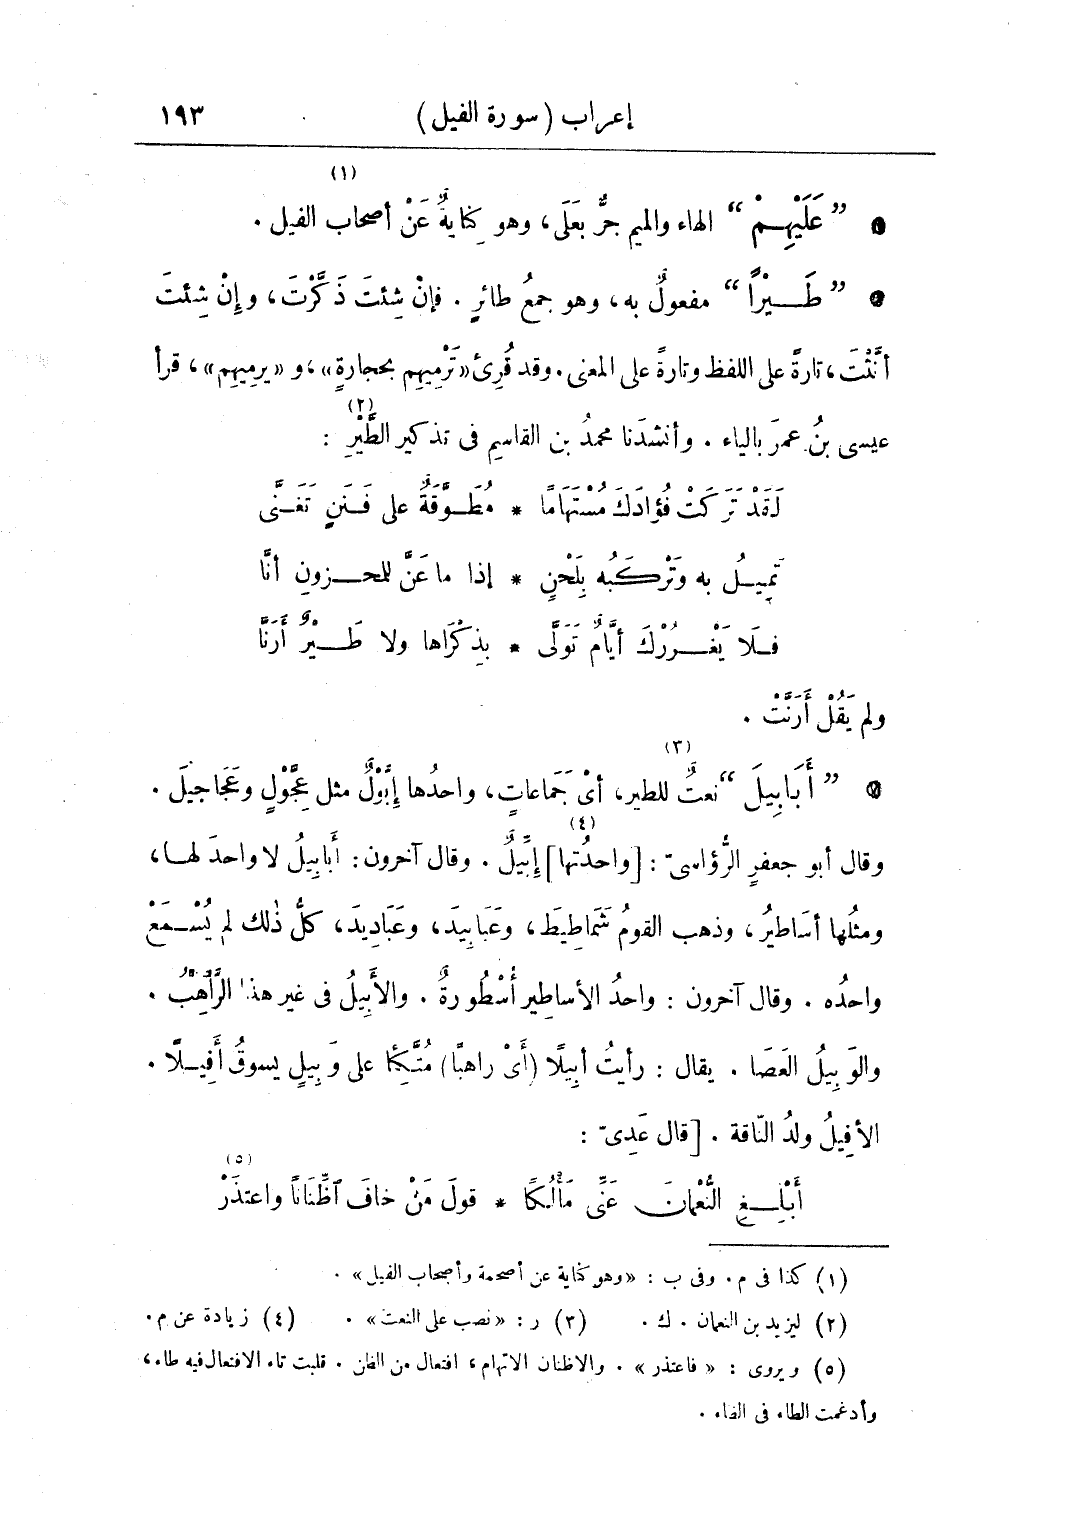 إعراب (سورة الفيل) ١٩٣
(١)
• ” عَلَيْهِمْ “ الهاء والميم جرٌّ بعَلَى، وهو كِنايةٌ عَنْ أصحاب الفيل .
• ” طَـيْرًا “ مفعولٌ به، وهو جمعُ طائرٍ . فإنْ شِئتَ ذَكَّرْتَ، وإِنْ شِئتَ
أنَّثْتَ، تارةً على اللفظ وتارةً على المعنى . وقد قُرِئ «تَرْمِيهِم بحجارةٍ»، و «يرمِيهِم»، قرأ
(٢)
عيسى بنُ عمرَ بالياء . وأنشدَنا محمدُ بن القاسِم فى تذكير الطَّيْرِ :
لَقَدْ تَرَكَتْ فُؤادَكَ مُسْتَهَامًا * مُطَـوَّقَةٌ على فَـنَنٍ تَغَـنَّى
تَمِيـلُ به وتَرْكَبُه بِلَحْنٍ * إذا ما عَنَّ للمحـزونِ أنَّا
فـلَا يَغْـرُرْكَ أيَّامٌ تَوَلَّى * بذِكْرَاها ولا طَـيْرٌ أَرَنَّا
ولم يَقُلْ أَرَنَّتْ .
(٣)
• ” أَبَابِيلَ “ نعتٌ للطير، أىْ جَمَاعاتٍ، واحدُها إِبَّوْلٌ مثل عِجَّوْلٍ وعَجَاجيلَ .
(٤)
وقال أبو جعفرٍ الرُّؤاسىّ : [واحدُتها] إِبِّيلٌ . وقال آخرون : أبابيلُ لا واحدَ لهـا،
ومثلُها أسَاطيرُ، وذهب القومُ شَمَاطِيطَ، وعَبَابِيدَ، وعَبَادِيدَ، كلُّ ذٰلك لم يُسْـمَعْ
واحدُه . وقال آخرون : واحدُ الأساطِير أُسْطُورةٌ . والأَبِيلُ فى غير هذا الرَّاهِبُ .
والوَبِيلُ العَصَا . يقال : رأيتُ أبِيلًا (أَىْ راهبًا) مُتَّكِئًا على وَبِيلٍ يسوقُ أَفِيـلًا .
الأفِيلُ ولدُ النّاقة . [قال عَدِىّ :
(٥)
أَبْلِـغِ النُّعْمانَ عَنِّى مَأْلُكًا * قولَ مَنْ خافَ ٱظِّنَانًا واعتذَرْ
(١) كذا فى م . وفى ب : «وهو كناية عن أصحمة وأصحاب الفيل» .
(٢) ليزيد بن النعمان . ك . (٣) ر : «نصب على النعت» . (٤) زيادة عن م .
(٥) ويروى : «فاعتذر» . والاظنان الاتهام، افتعال من الظن . قلبت تاء الافتعال فيه طاء،
وأدغمت الطاء فى الظاء .